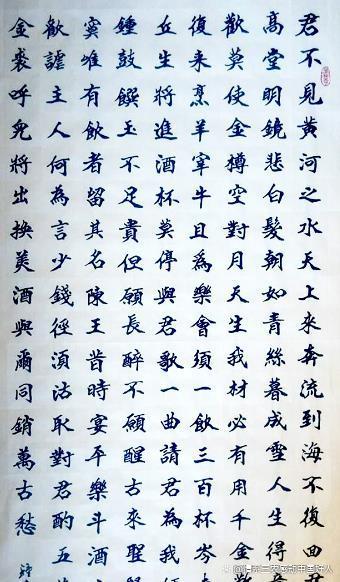 君不見黃河之水天上來奔流到海不復回
高堂明鏡悲白髮朝如青絲暮成雪人生得
歡莫使金樽空對月天生我材必有用千金
復來烹羊宰牛且為樂會須一飲三百杯岑
丘生將進酒杯莫停與君歌一曲請君為我
鍾鼓饌玉不足貴但願長醉不願醒古來聖
寞唯有飲者留其名陳王昔時宴平樂斗酒
歡謔主人何為言少錢徑須沽取對君酌五
金裘呼兒將出換美酒與爾同銷萬古愁